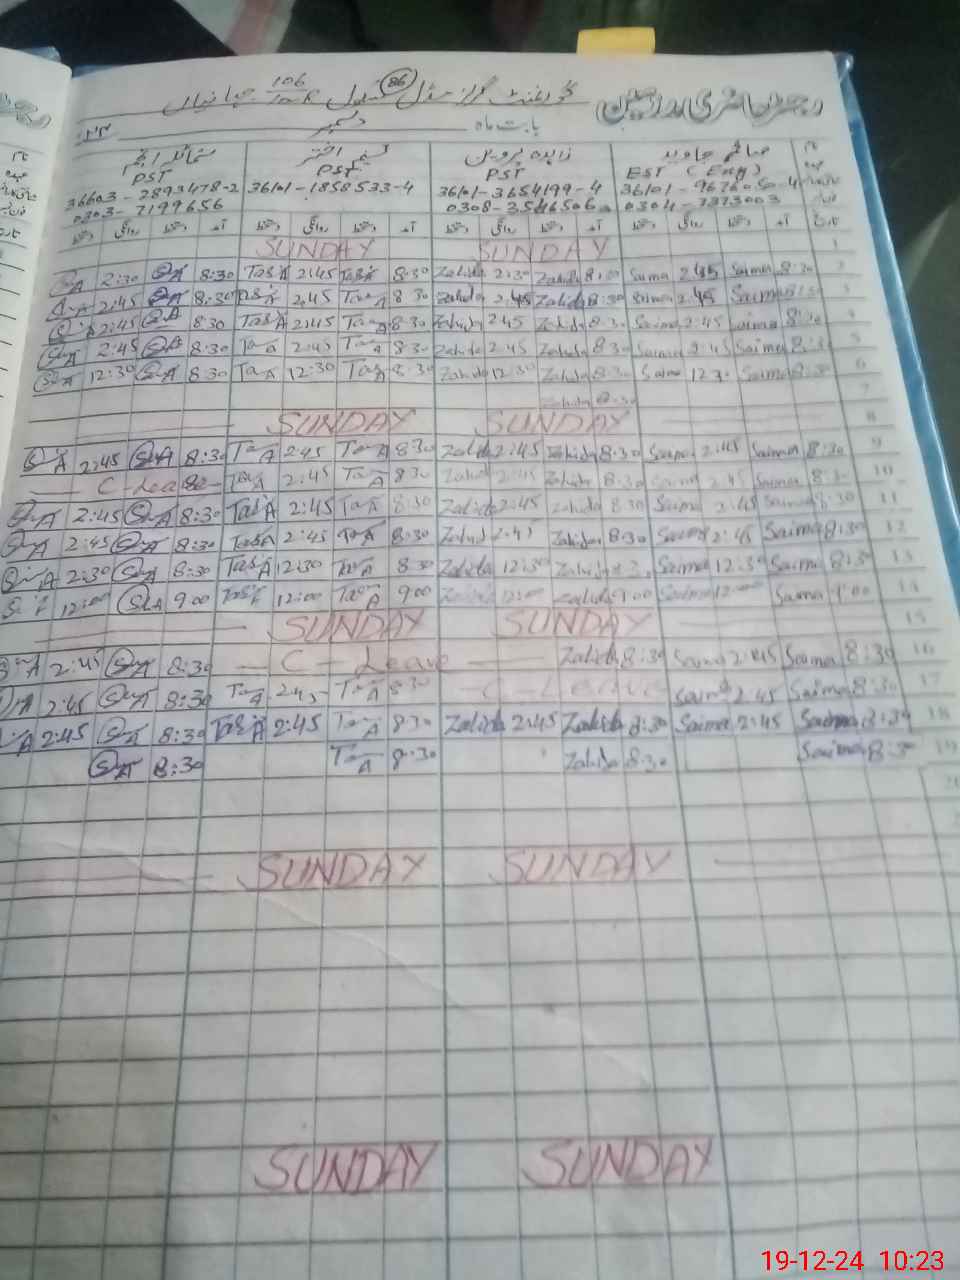 رجسٹر حاضری مدرسین گورنمنٹ گرلز مڈل سکول 86 106/10R جہانیاں
بابت ماہ دسمبر
صائمہ جاوید زاہدہ پروین نسیم اختر شمائلہ انجم
EST (Eng) PST PST PST
36603-2893478-2 36101-1858533-4 36101-3654199-4
0303-7199656 0308-3546506 0304-7373003
SUNDAY SUNDAY 1
S.A 2:30 S.A 8:30 Tas A 2:45 Tas A 8:30 Zahida 2:30 Zahida Saima 2:45 Saima 8:30 2
S.A 2:45 S.A 8:30 Tas A 2:45 Tas A 8:30 Zahida 2:45 Zahida 8:30 Saima 2:45 Saima 8:30 3
S.A 2:45 S.A 8:30 Tas A 2:45 Tas A 8:30 Zahida 2:45 Zahida 8:30 Saima 2:45 Saima 8:30 4
S.A 2:45 S.A 8:30 Tas A 2:45 Tas A 8:30 Zahida 2:45 Zahida 8:30 Saima 2:45 Saima 8:30 5
S.A 12:30 S.A 8:30 Tas A 12:30 Tas A 8:30 Zahida 12:30 Zahida 8:30 Saima 12:30 Saima 8:30 6
Zahida 8:30 7
SUNDAY SUNDAY 8
S.A 2:45 S.A 8:30 Tas A 2:45 Tas A 8:30 Zahida 2:45 Zahida 8:30 Saima 2:45 Saima 8:30 9
C-Leave Tas A 2:45 Tas A 8:30 Zahida 2:45 Zahida 8:30 Saima 2:45 Saima 8:30 10
S.A 2:45 S.A 8:30 Tas A 2:45 Tas A 8:30 Zahida 2:45 Zahida 8:30 Saima 2:45 Saima 8:30 11
S.A 2:45 S.A 8:30 Tas A 2:45 Tas A 8:30 Zahida 2:45 Zahida 8:30 Saima 2:45 Saima 8:30 12
S.A 2:30 S.A 8:30 Tas A 12:30 Tas A 8:30 Zahida 12:30 Zahida 8:30 Saima 12:30 Saima 8:30 13
S.A 12:00 S.A 9:00 Tas A 12:00 Tas A 9:00 Zahida 12:00 Zahida 9:00 Saima 12:00 Saima 14
SUNDAY SUNDAY 15
S.A 2:45 S.A 8:30 C-Leave Zahida 8:30 Saima 2:45 Saima 8:30 16
S.A 2:45 S.A 8:30 Tas A 2:45 Tas A 8:30 C-Leave Saima 2:45 Saima 8:30 17
S.A 2:45 S.A 8:30 Tas A 2:45 Tas A 8:30 Zahida 2:45 Zahida 8:30 Saima 2:45 Saima 8:30 18
S.A 8:30 Tas A 8:30 Zahida 8:30 Saima 8:30 19
SUNDAY SUNDAY
SUNDAY SUNDAY
19-12-24 10:23